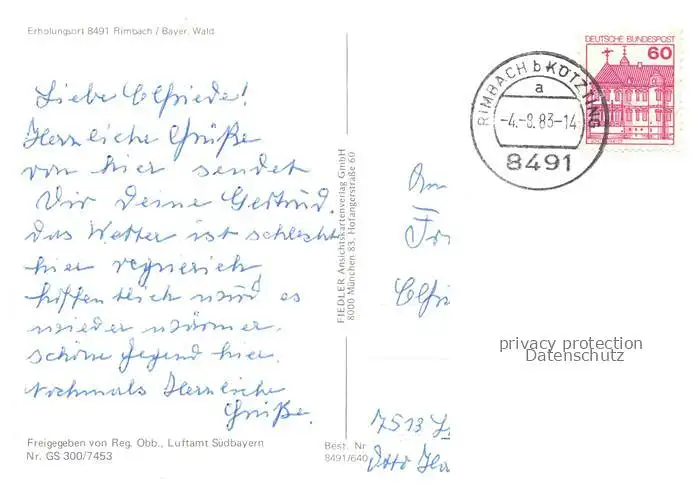 Erholungsort 8491 Rimbach / Bayer. Wald
Liebe Elfriede!
Herrliche Grüße
von hier sendet
Dir Deine Gertrud.
Das Wetter ist schlecht
hier regnerich
hoffentlich wird es
wieder wärmer.
schöne Gegend hier.
Nochmals Herrliche
Grüße.
Freigegeben von Reg. Obb., Luftamt Südbayern
Nr. GS 300/7453
FIEDLER Ansichtskartenverlag GmbH
8000 München 83, Hofangerstraße 60
Best. Nr
8491/640
DEUTSCHE BUNDESPOST
60
RIMBACH b KÖTZTING
a
-4.-8.83-14
8491
An
Fr
Elfri
7513
Otto
privacy protection
Datenschutz